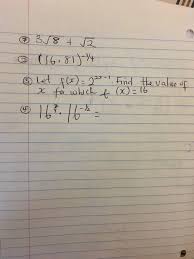 ② 3√8 + √2
③ (16.81)^-1/4
⑤ Let f(x) = 2^2x-1. Find the value of
x for which f(x) = 16
④ 16 . 16^-½ =